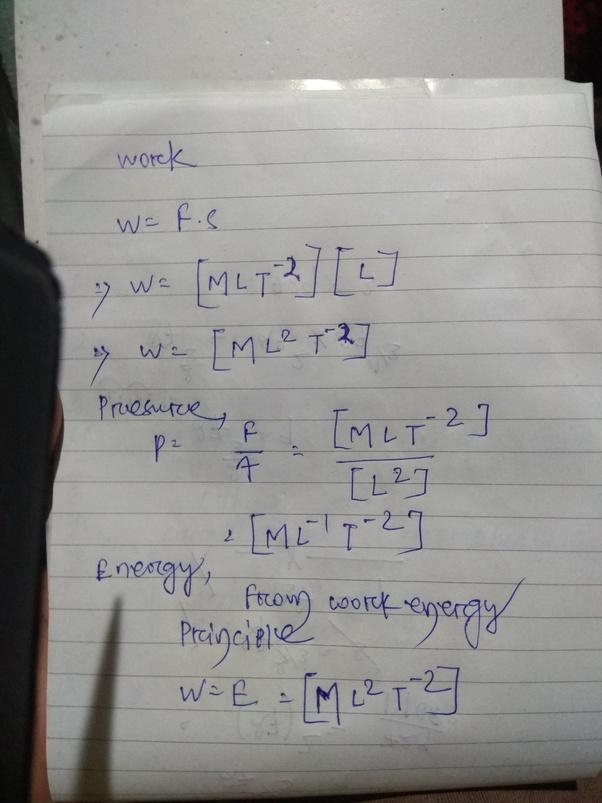 work
W= F.S
⇒ W= [MLT⁻²] [L]
⇒ W= [ML² T⁻²]
Pruesurce,
P= F/A = [MLT⁻²]/[L²]
= [ML⁻¹ T⁻²]
Energy,
From work energy
Principle
W=E = [ML² T⁻²]